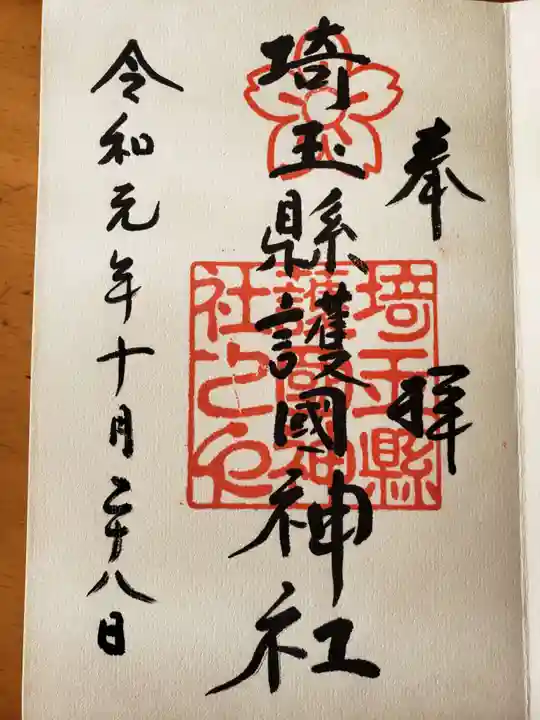 奉拜
埼玉縣護國神社
令和元年十月二十八日
埼玉縣
護國神
社之印